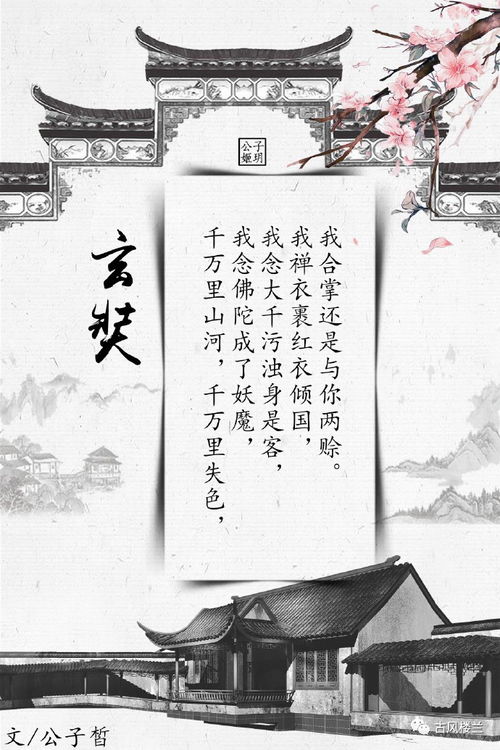 公子
姬玥
玄奘
千万里山河，千万里失色，
我念佛陀成了妖魔，
我念大千污浊身是客，
我禅衣裹红衣倾国，
我合掌还是与你两赊。
文/公子皙
古风楼兰